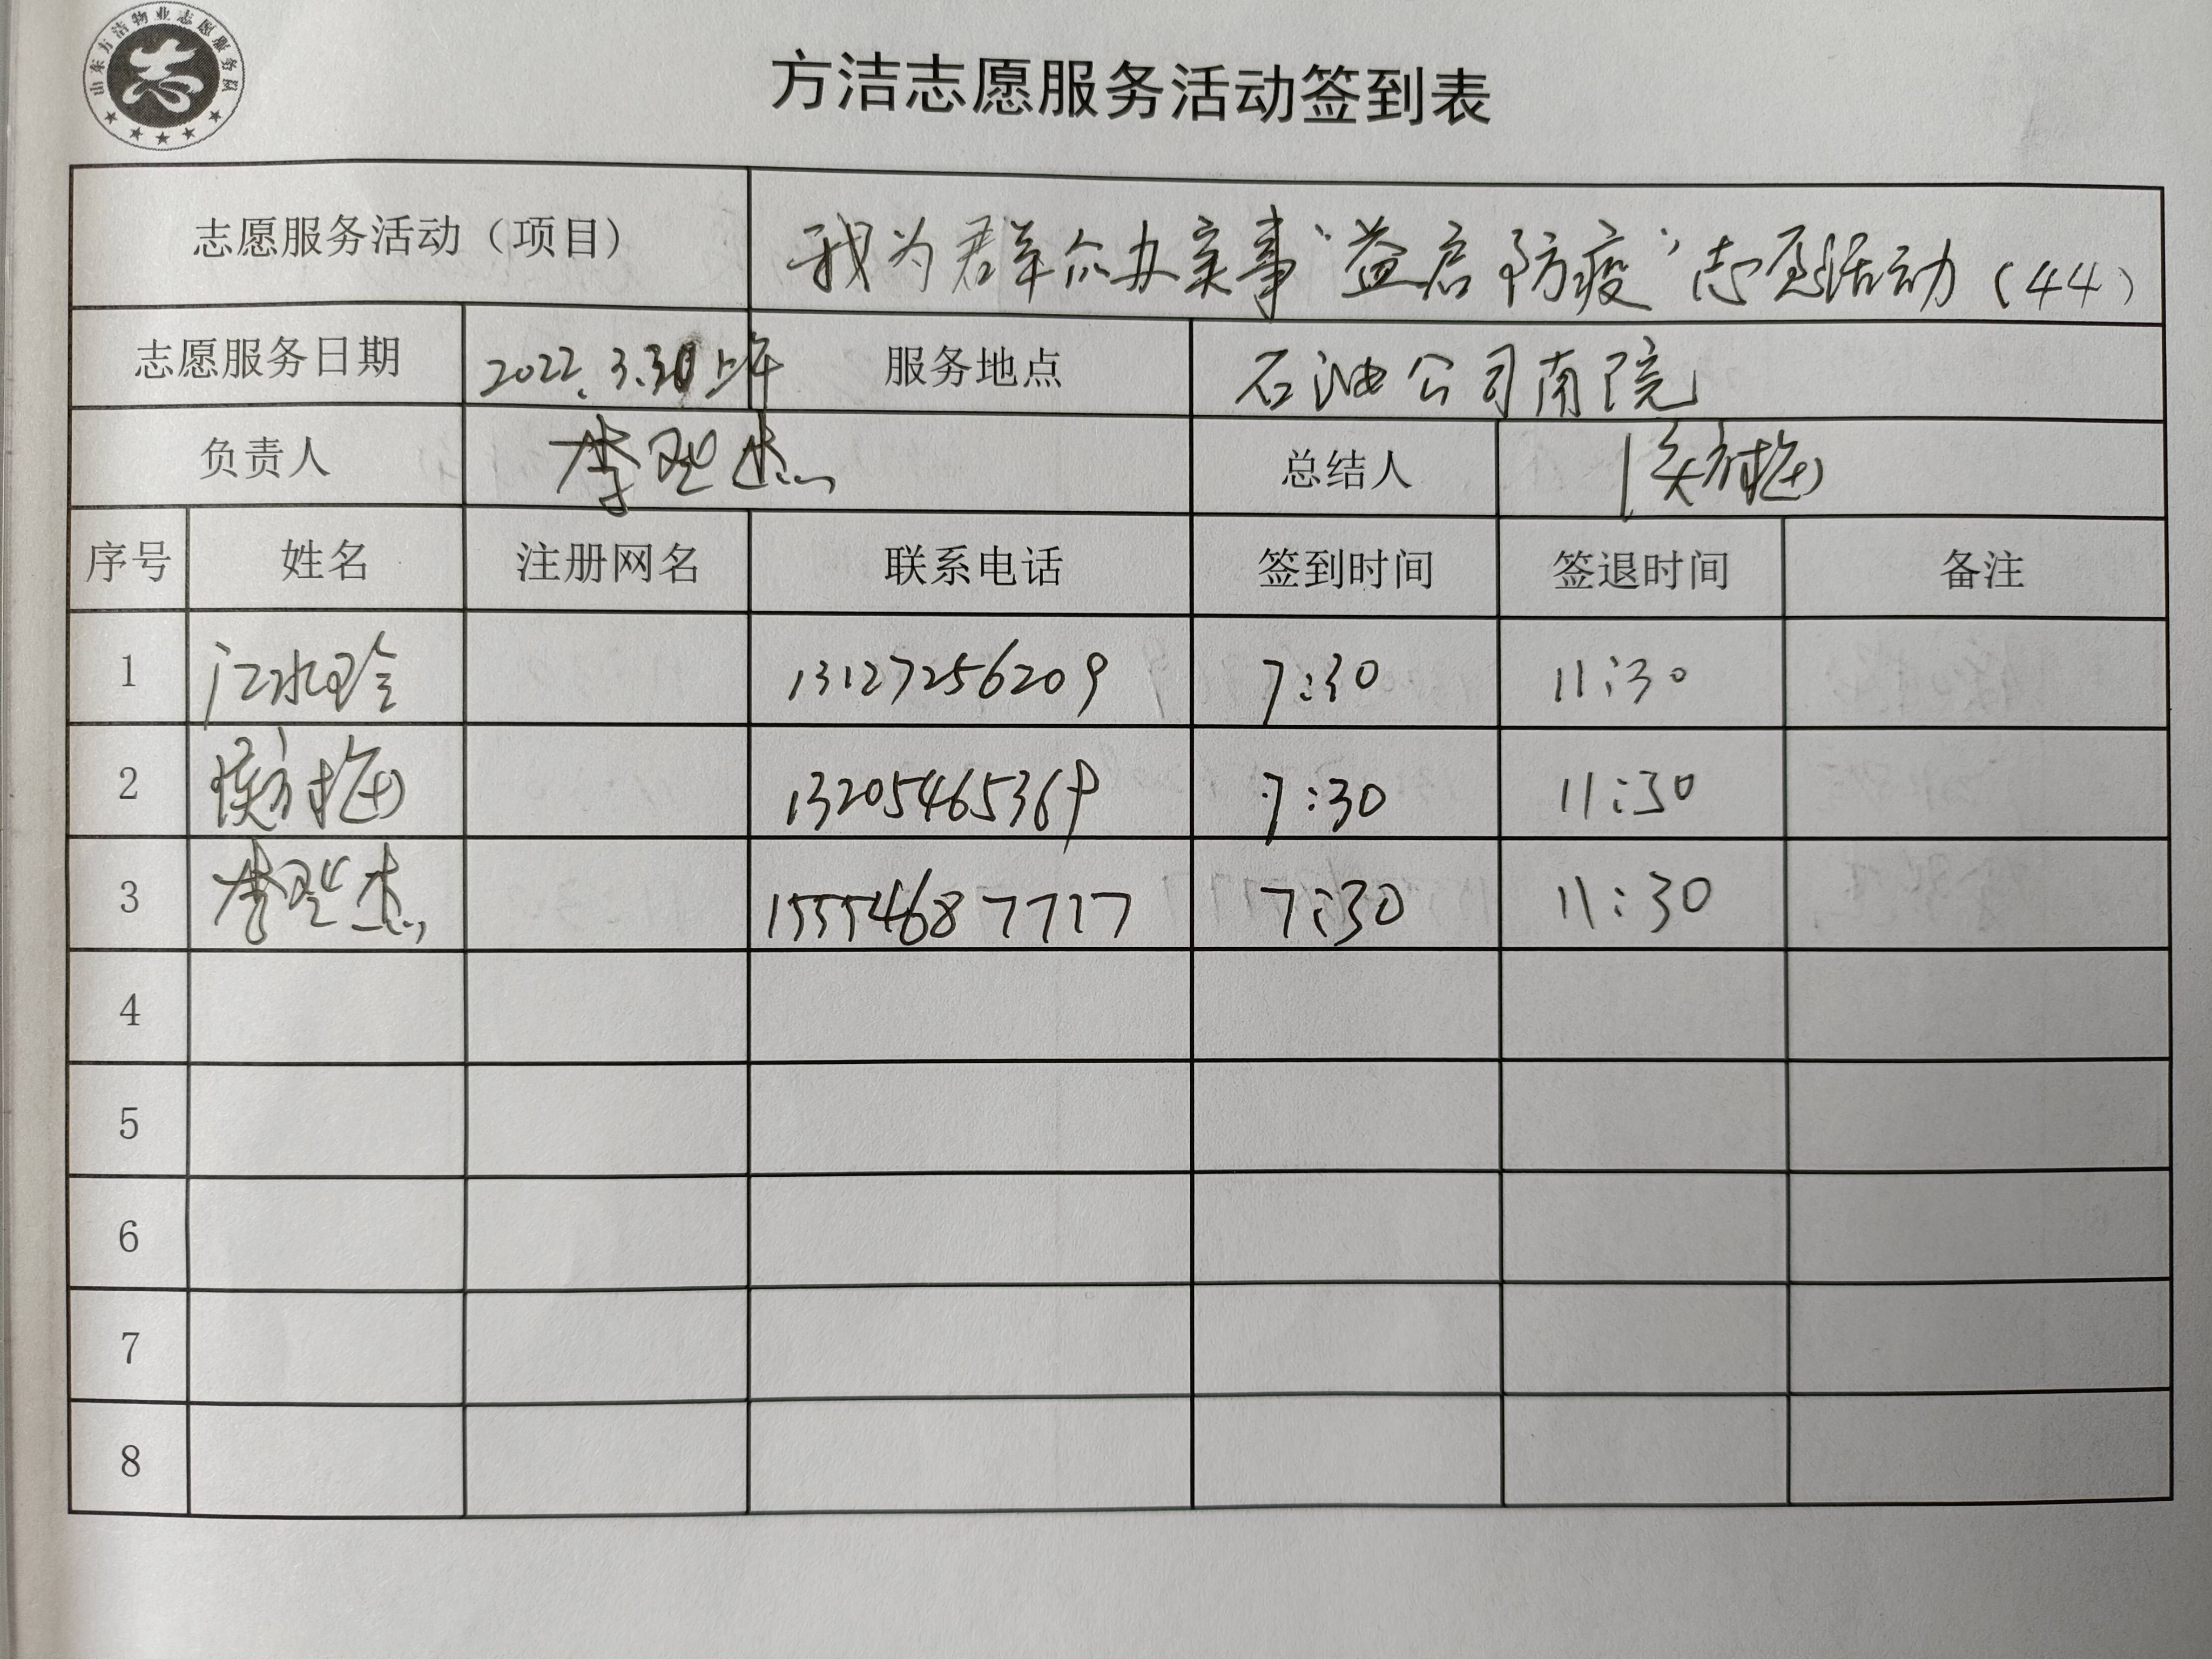 山东方洁物业志愿服务队
志
方洁志愿服务活动签到表
志愿服务活动（项目） 我为群众办实事“益启防疫”志愿活动（44）
志愿服务日期 2022.3.30上午 服务地点 石油公司南院
负责人 李 杰 总结人 侯方梅
序号 姓名 注册网名 联系电话 签到时间 签退时间 备注
1 江水玲 13127256209 7:30 11:30
2 侯方梅 13205465369 7:30 11:30
3 李 杰 15554687777 7:30 11:30
4
5
6
7
8